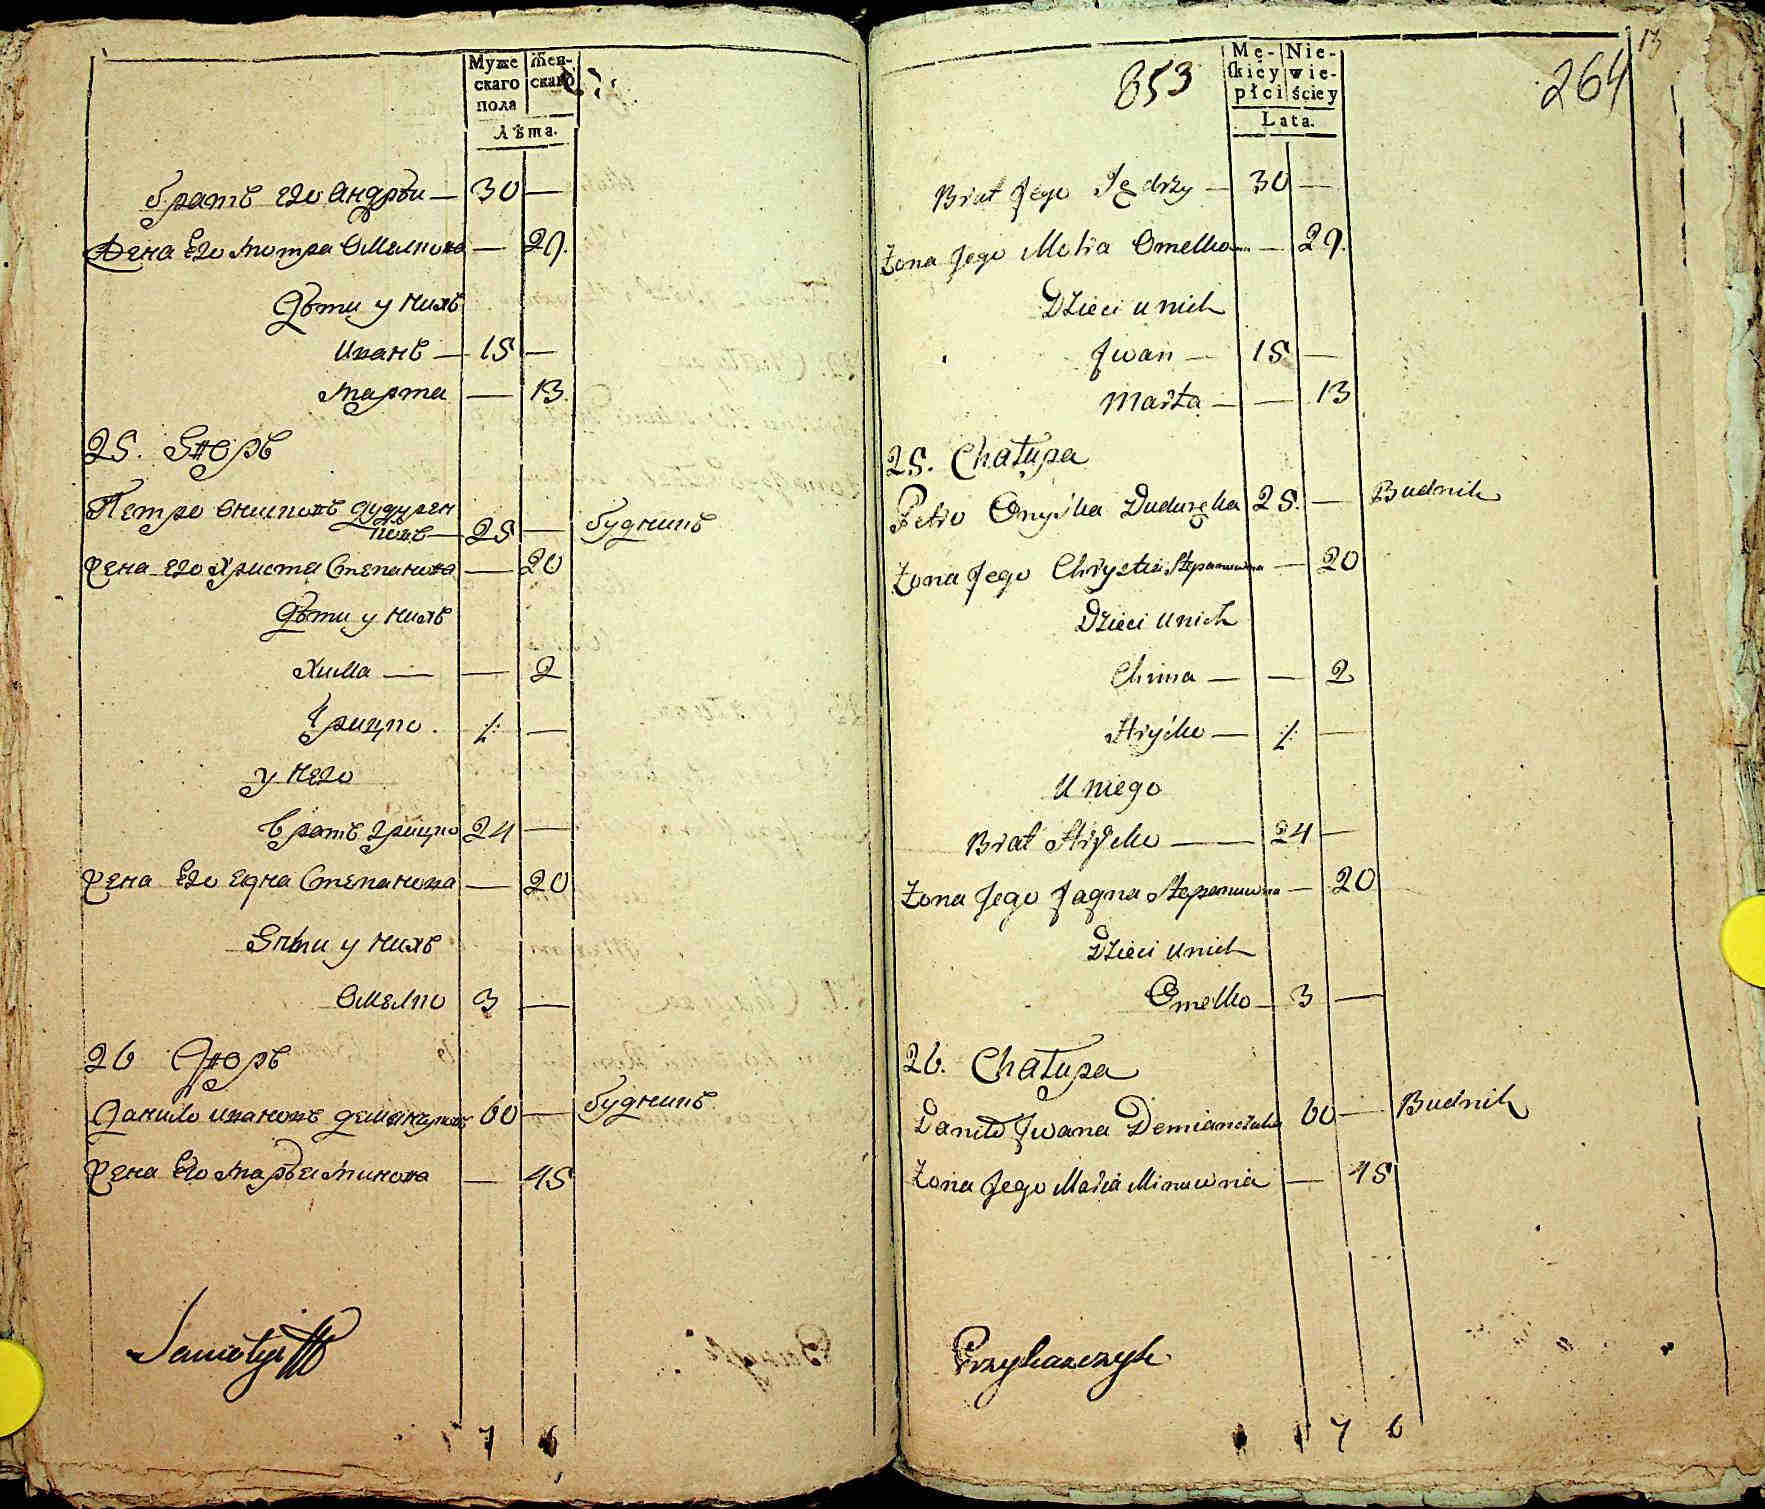 Муже
скаго
пола
Жен-
скаго
Лѣта.
братъ его Андрѣи — 30 —
Жена Его Мотра Омелкова — 29.
Дѣти у нихъ
Иванъ — 15 —
Марта — 13.
25. Дворъ
Петро Онисковъ Дудурен
ковъ — 25 — будникъ
Жена его Христа Степанова — 20
Дѣти у нихъ
Хима — — 2
Грицко . 1/. —
у него
братъ Грицко 24 —
Жена Его Ядна Степанова — 20
Дѣти у нихъ
Омелко 3 —
26 Дворъ
Данило Ивановъ Демянчуковъ 60 — будникъ
Жена Его Марья Минова — 45
7 6
853
Mę-
ſkiey
płci
Nie-
wie-
ściey
Lata.
264
13
Brat Jego Jędrzy — 30 —
Żona Jego Motra Omelkowna — 29.
Dzieci u nich
Jwan — 15 —
Marta — — 13
25. Chałupa
Petro Onyśka Dudureka 25. — Budnik
Żona Jego Chrystia Stepanowna — 20
Dzieci u nich
Chima — — 2
Hryćko — 1/. —
U niego
Brat Hryćko — 24 —
Żona Jego Jagna Stepanowna — 20
Dzieci u nich
Omelko — 3 —
26. Chałupa
Daniło Jwana Demianczuka 60 — Budnik
Żona Jego Maria Minowna — 45
Przykarczyk
7 6